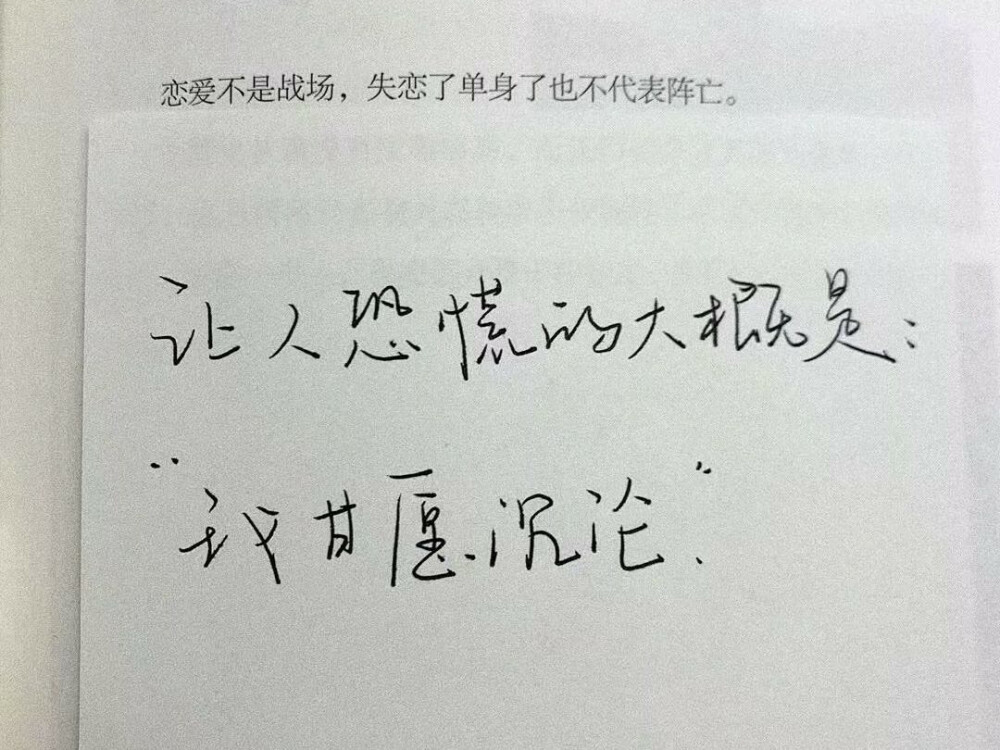 恋爱不是战场，失恋了单身了也不代表阵亡。
让人恐慌的大概是：
“我甘愿沉沦”.